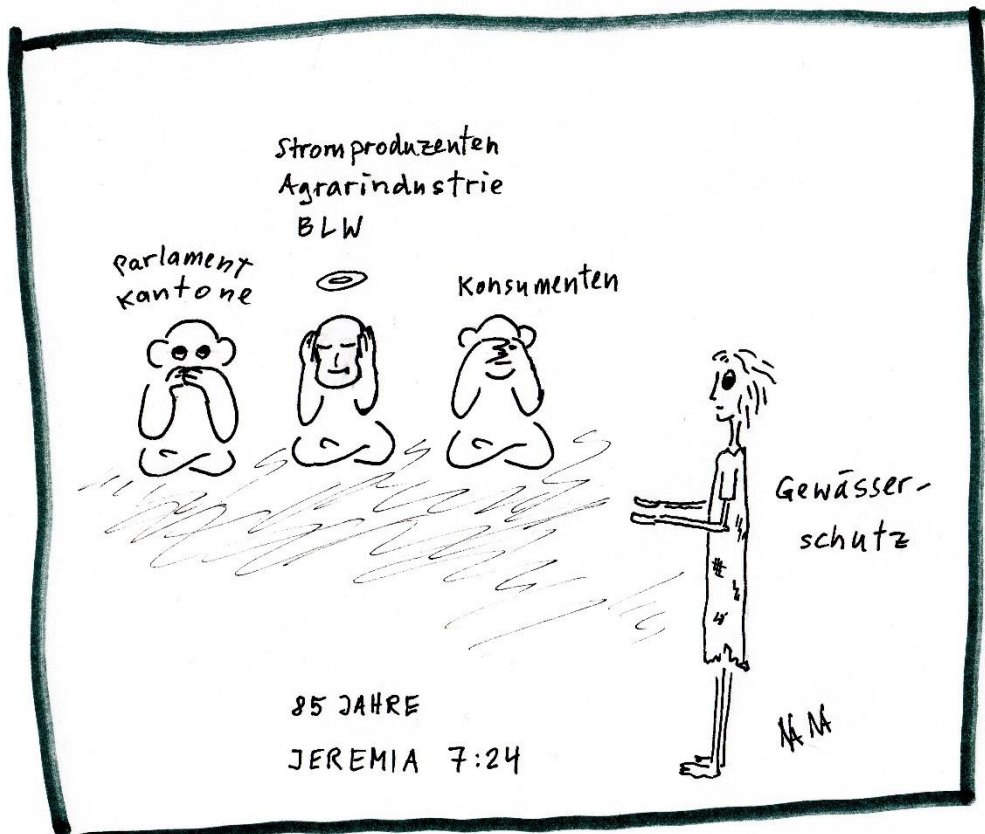 Stromproduzenten
Agrarindustrie
BLW
Parlament
Kantone
Konsumenten
Gewässer-
schutz
85 JAHRE
JEREMIA 7:24